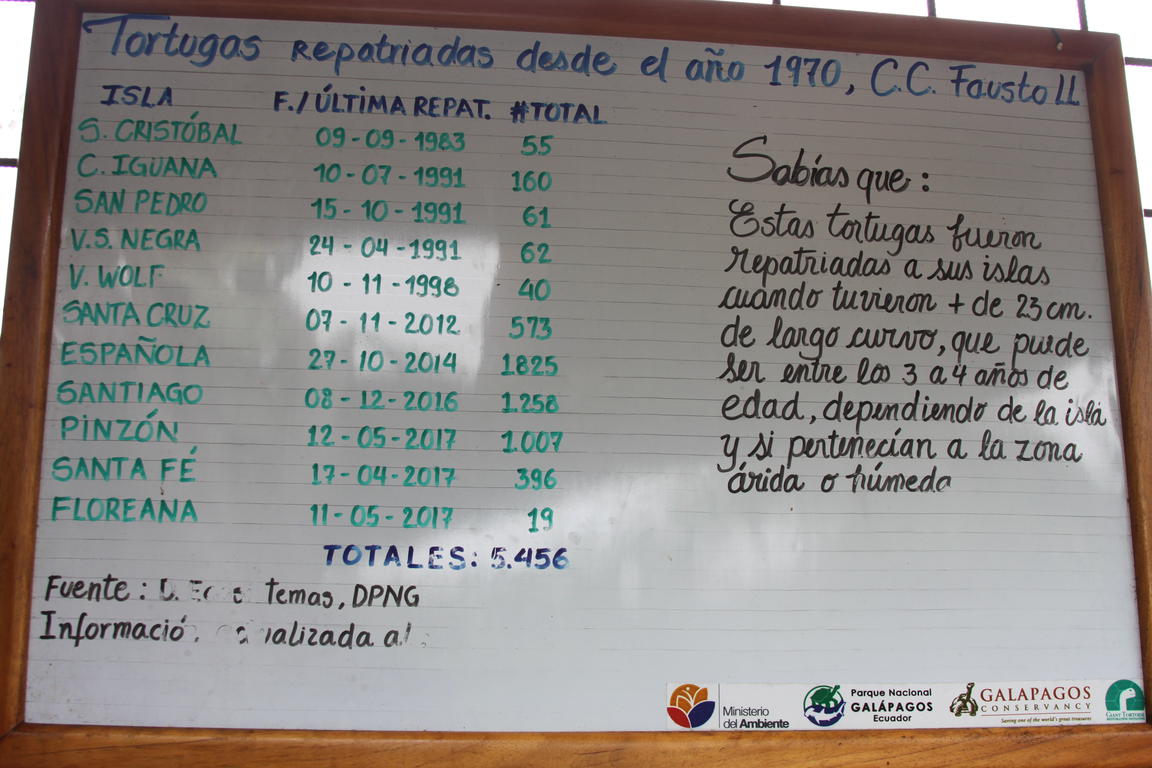 Tortugas repatriadas desde el año 1970, C.C. Fausto Ll
ISLA F./ÚLTIMA REPAT. #TOTAL
S. CRISTÓBAL 09-09-1983 55
C. IGUANA 10-07-1991 160
SAN PEDRO 15-10-1991 61
V.S. NEGRA 24-04-1991 62
V. WOLF 10-11-1998 40
SANTA CRUZ 07-11-2012 573
ESPAÑOLA 27-10-2014 1825
SANTIAGO 08-12-2016 1.258
PINZÓN 12-05-2017 1.007
SANTA FÉ 17-04-2017 396
FLOREANA 11-05-2017 19
TOTALES: 5.456
Fuente: D. temas, DPNG
al
Sabías que:
Estas tortugas fueron
repatriadas a sus islas
cuando tuvieron + de 23 cm.
de largo curvo, que puede
ser entre los 3 a 4 años de
edad, dependiendo de la isla
y si pertenecían a la zona
árida o húmeda
Ministerio
del Ambiente
Parque Nacional
GALÁPAGOS
Ecuador
GALAPAGOS
CONSERVANCY
Saving one of the world's great treasures